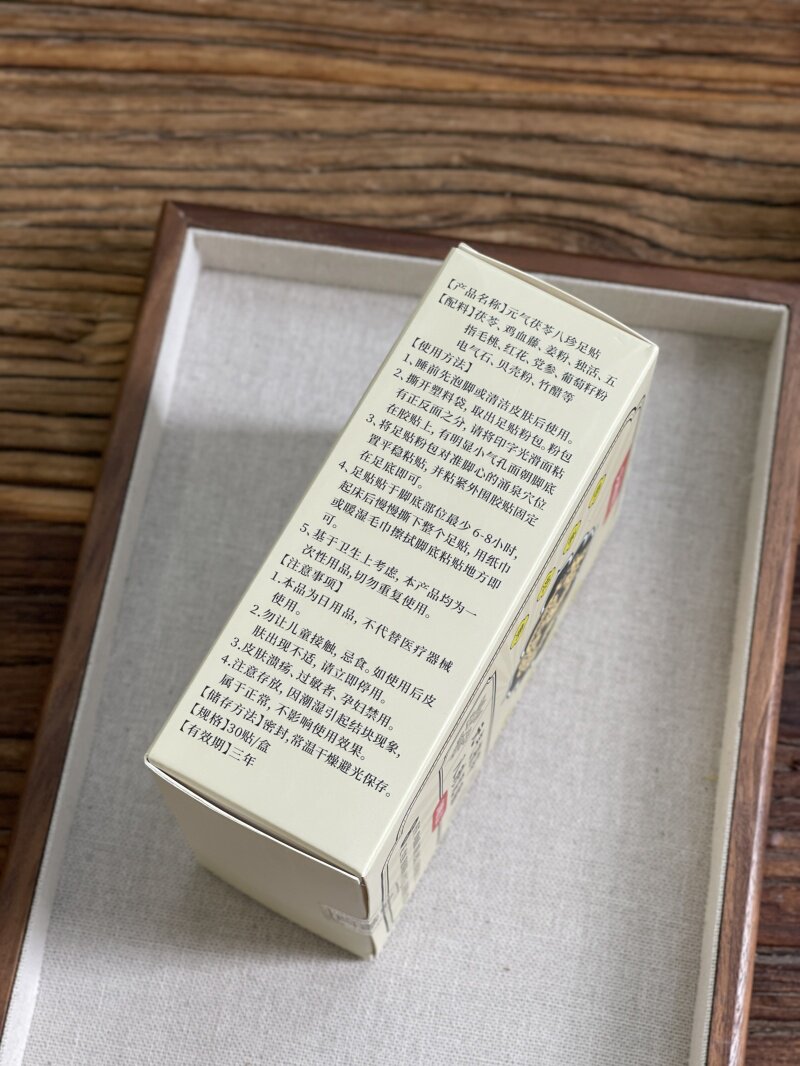 【产品名称】元气茯苓八珍足贴
【配料】茯苓、鸡血藤、姜粉、独活、五
指毛桃、红花、党参、葡萄籽粉
电气石、贝壳粉、竹醋等
【使用方法】
1、睡前先泡脚或清洁皮肤后使用。
2、撕开塑料袋，取出足贴粉包。粉包
有正反面之分，请将印字光滑面粘
在胶贴上，有明显小气孔面朝脚底
3、将足贴粉包对准脚心的涌泉穴位
置平稳粘贴，并粘紧外围胶贴固定
在足底即可。
4、足贴贴于脚底部位最少6-8小时，
起床后慢慢撕下整个足贴，用纸巾
或暖湿毛巾擦拭脚底粘贴地方即
可。
5、基于卫生上考虑，本产品均为一
次性用品,切勿重复使用。
【注意事项】
1.本品为日用品，不代替医疗器械
使用。
2.勿让儿童接触，忌食。如使用后皮
肤出现不适，请立即停用。
3.皮肤溃疡、过敏者、孕妇禁用。
4.注意存放，因潮湿引起结块现象，
属于正常，不影响使用效果。
【储存方法】密封,常温干燥避光保存。
【规格】30贴/盒
【有效期】三年